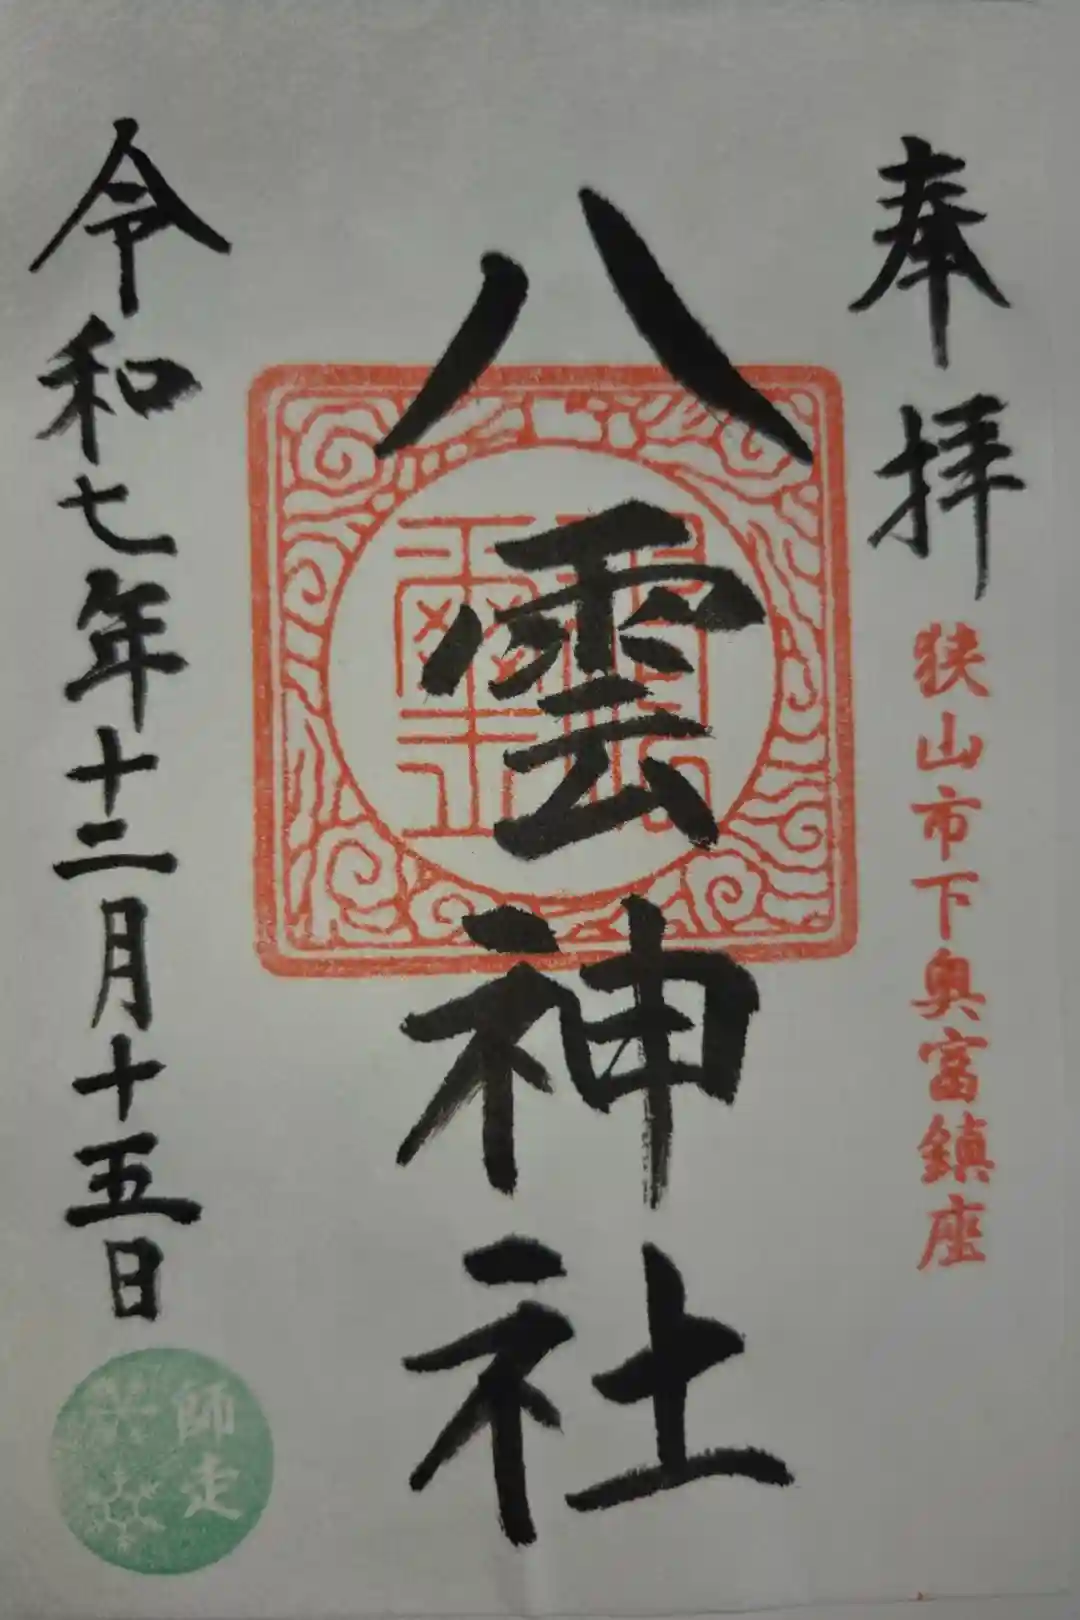 奉拝
狭山市下奥富鎮座
八雲神社
令和七年十二月十五日
師走